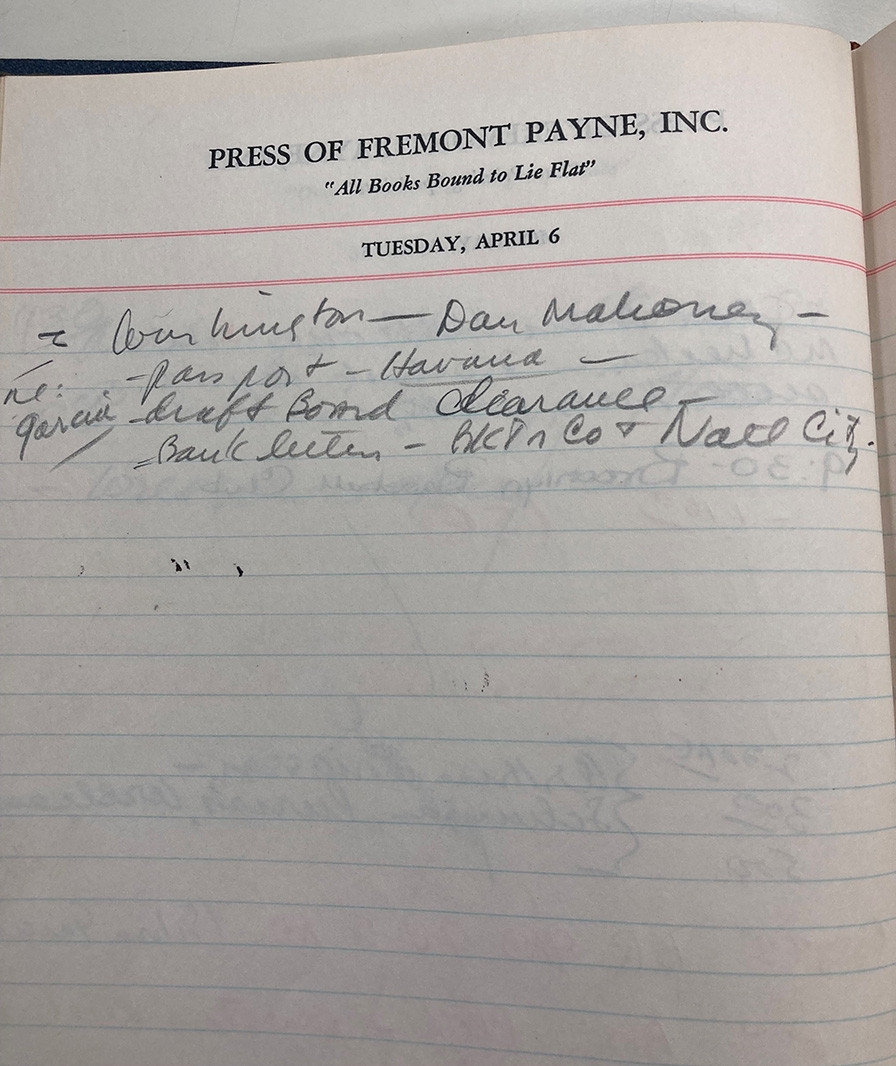 PRESS OF FREMONT PAYNE, INC.
"All Books Bound to Lie Flat"
TUESDAY, APRIL 6
Washington — Dan Mahoney —
re: - passport - Havana —
Garcia - draft Board Clearance -
Bank letters - BKTr Co + Natl City.
9:30-